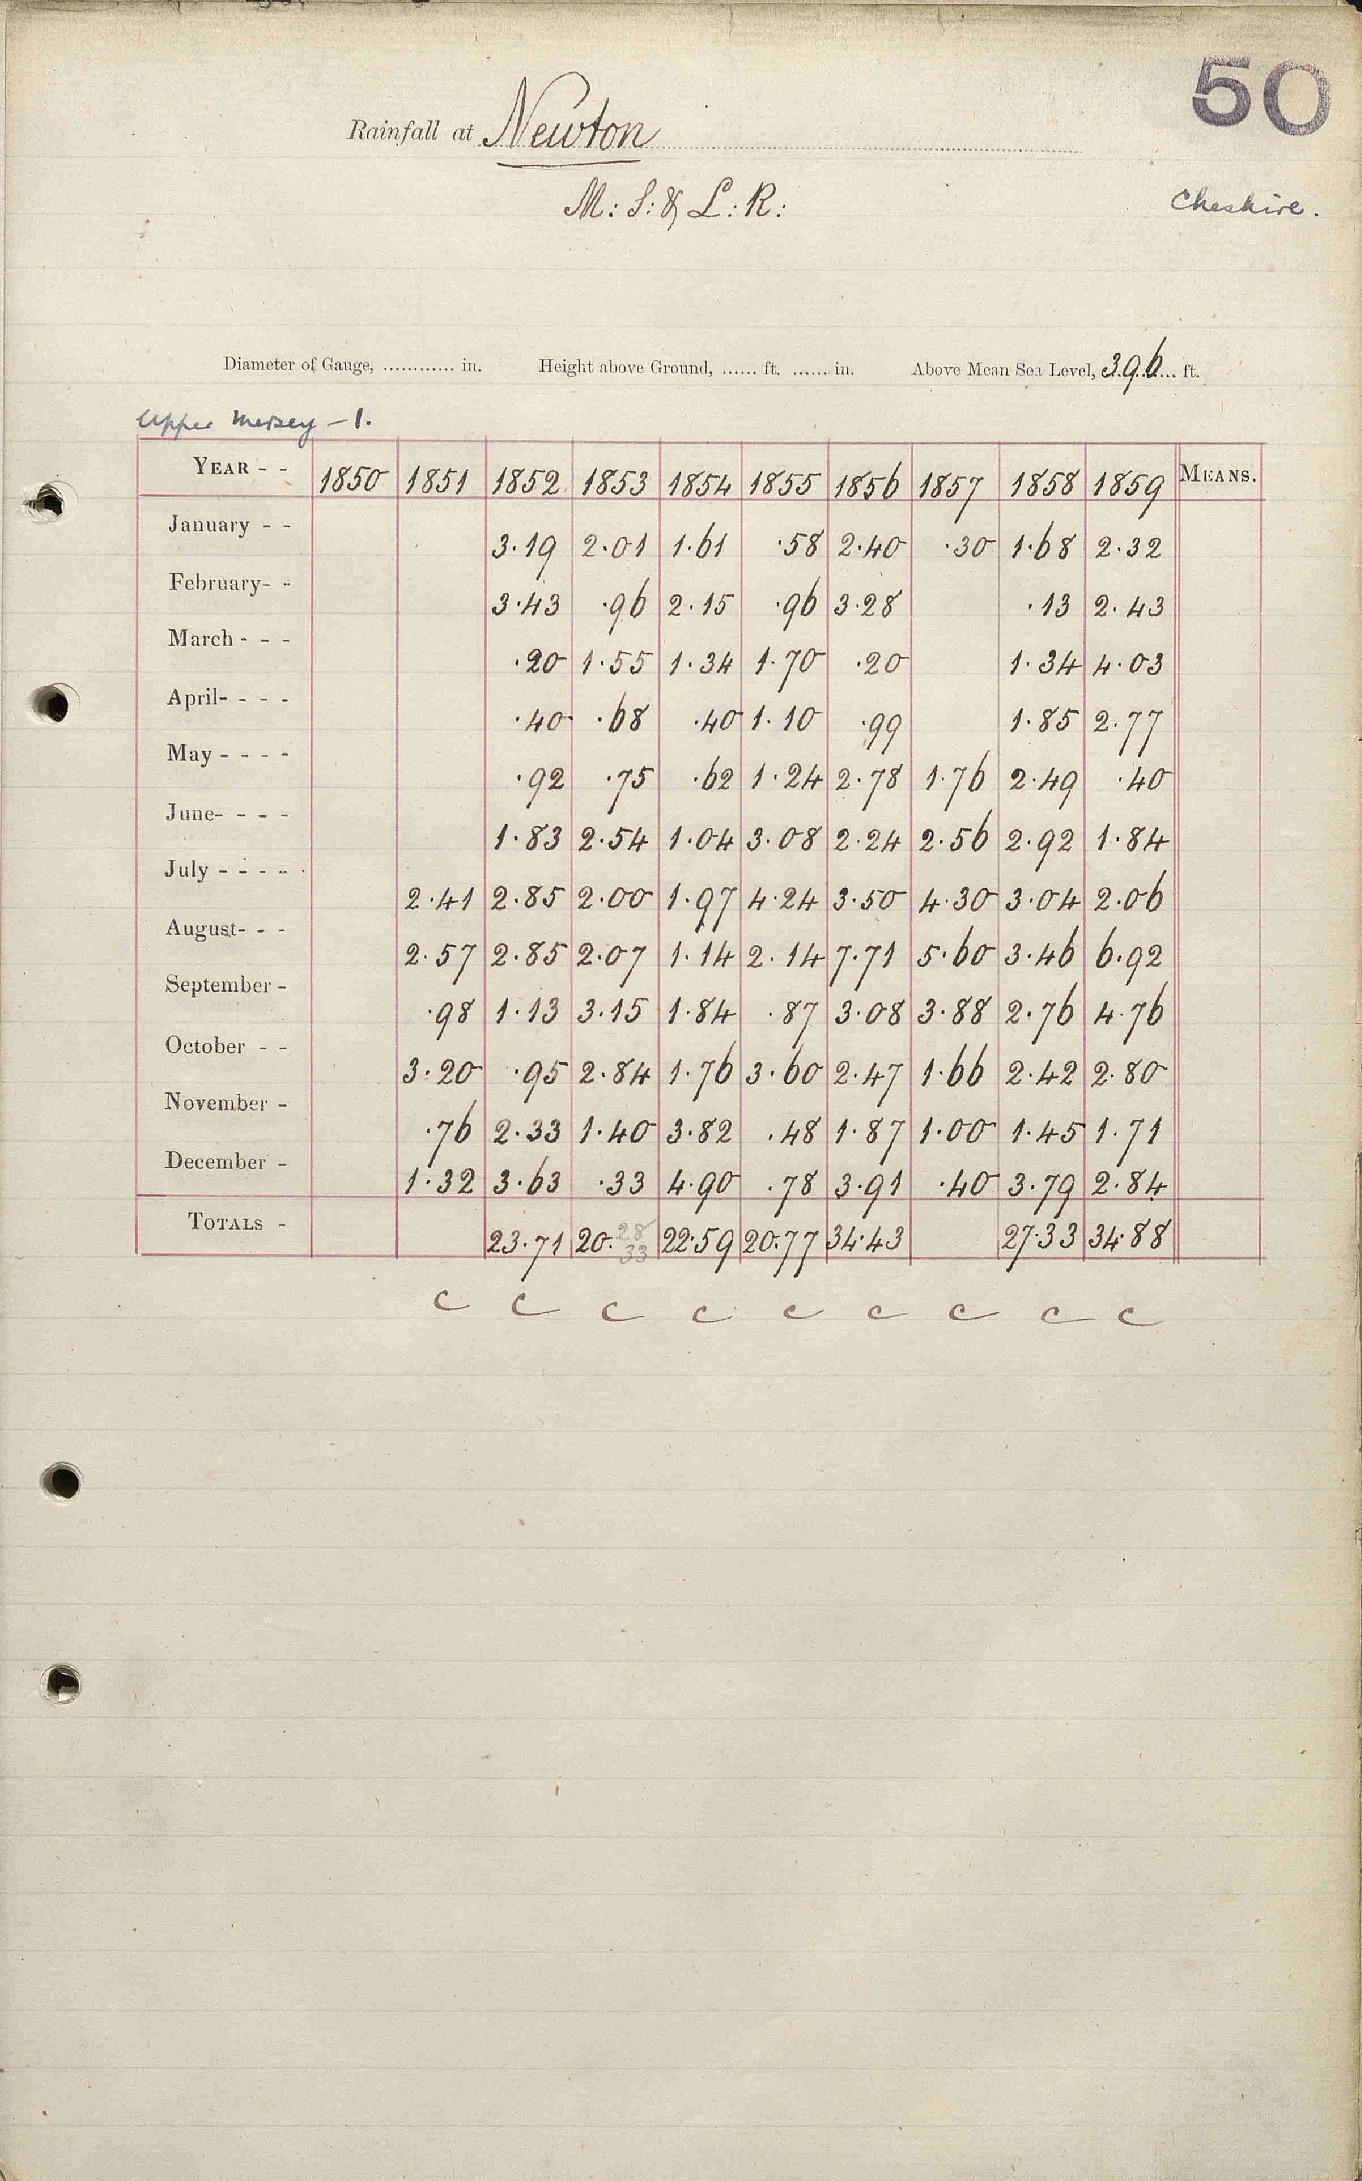 50
Rainfall at Newton
M: S: & L: R:
Cheshire.
Diameter of Gauge, ............ in. Height above Ground, ...... ft. ...... in. Above Mean Sea Level, 396 ft.
Upper Mersey - 1.
YEAR - - 1850 1851 1852 1853 1854 1855 1856 1857 1858 1859 MEANS.
January - - 3.19 2.01 1.61 .58 2.40 .30 1.68 2.32
February- - 3.43 .96 2.15 .96 3.28 .13 2.43
March - - - .20 1.55 1.34 1.70 .20 1.34 4.03
April- - - - .40 .68 .40 1.10 .99 1.85 2.77
May - - - - .92 .75 .62 1.24 2.78 1.76 2.49 .40
June- - - - 1.83 2.54 1.04 3.08 2.24 2.56 2.92 1.84
July - - - - 2.41 2.85 2.00 1.97 4.24 3.50 4.30 3.04 2.06
August- - - 2.57 2.85 2.07 1.14 2.14 7.71 5.60 3.46 6.92
September - .98 1.13 3.15 1.84 .87 3.08 3.88 2.76 4.76
October - - 3.20 .95 2.84 1.76 3.60 2.47 1.66 2.42 2.80
November - .76 2.33 1.40 3.82 .48 1.87 1.00 1.45 1.71
December - 1.32 3.63 .33 4.90 .78 3.91 .40 3.79 2.84
TOTALS - 23.71 20.28 22.59 20.77 34.43 27.33 34.88
33
c c c c c c c c c